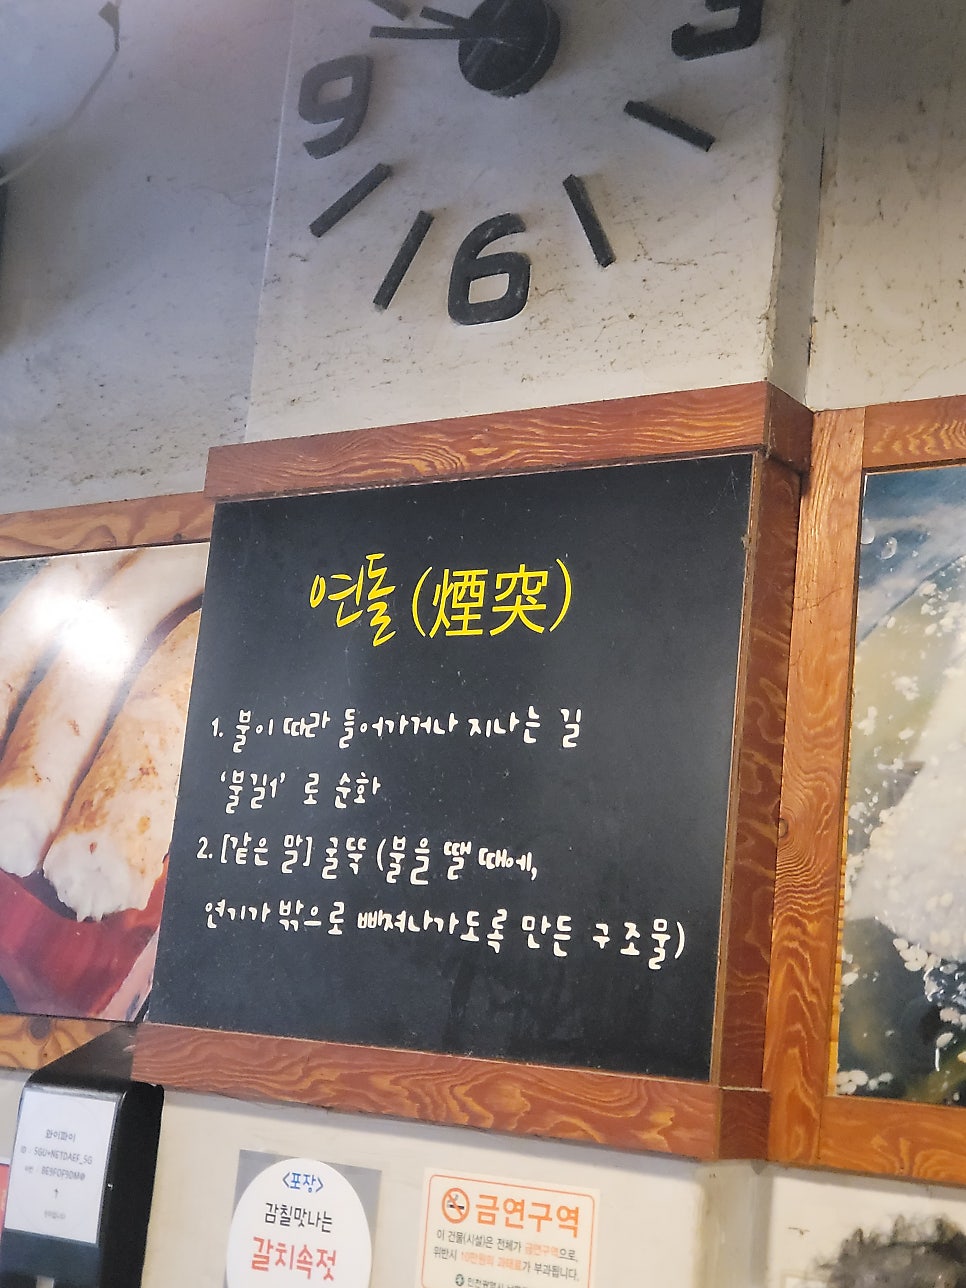 9
3
6
연돌 (煙突)
1. 불이 따라 들어가거나 지나는 길
‘불길1’ 로 순화
2. [같은 말] 굴뚝 (불을 땔 때에,
연기가 밖으로 빠져나가도록 만든 구조물)
와이파이
<포장>
감칠맛나는
갈치속젓
금연구역
이 건물(시설)은 전체가 금연구역으로,
위반시 10만원의 과태료가 부과됩니다.
인천광역시